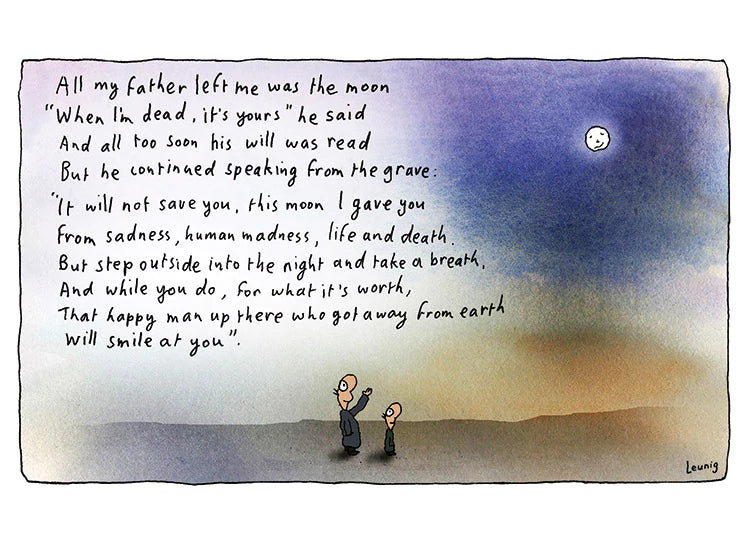 All my father left me was the moon
"When I'm dead, it's yours" he said
And all too soon his will was read
But he continued speaking from the grave:
"It will not save you, this moon I gave you
From sadness, human madness, life and death.
But step outside into the night and take a breath,
And while you do, for what it's worth,
That happy man up there who got away from earth
Will smile at you".
Leunig